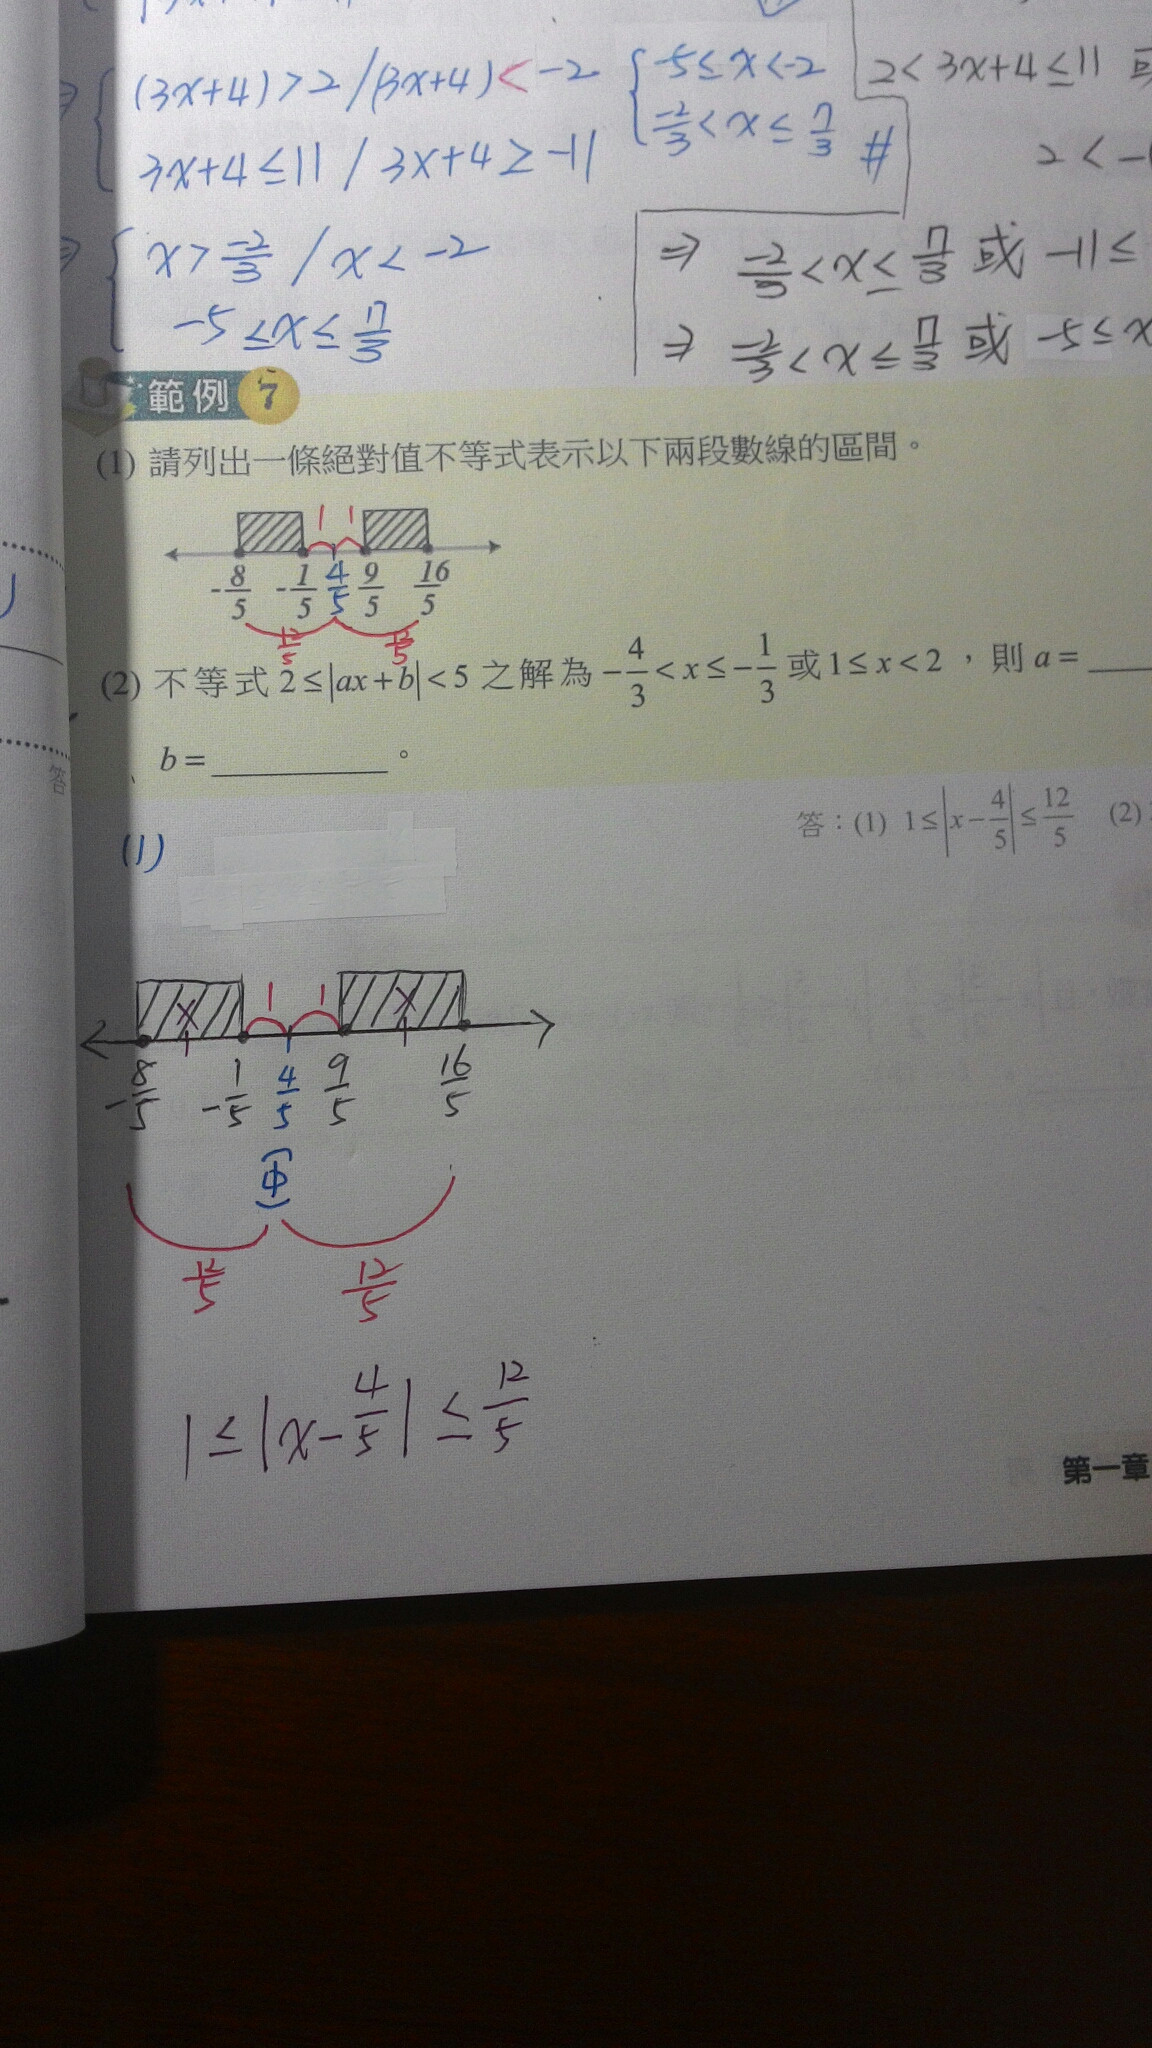 (3x+4)>2 / (3x+4)<-2
3x+4≤11 / 3x+4≥-11
⇒ x>-2/3 / x<-2
-5≤x≤7/3
-5≤x<-2
-2/3<x≤7/3 #
2<3x+4≤11 或
2<-(
⇒ -2/3<x≤7/3 或 -11≤
⇒ -2/3<x≤7/3 或 -5≤x
範例 7
(1) 請列出一條絕對值不等式表示以下兩段數線的區間。
1 1
-8/5 -1/5 4/5 9/5 16/5
12/5 12/5
(2) 不等式 2≤|ax+b|<5 之解為 -4/3<x≤-1/3 或 1≤x<2,則 a=
、b=。
答:(1) 1≤|x-4/5|≤12/5 (2)
答
(1)
1 1
-8/5 -1/5 4/5 9/5 16/5
(中)
12/5 12/5
1≤|x-4/5|≤12/5
第一章